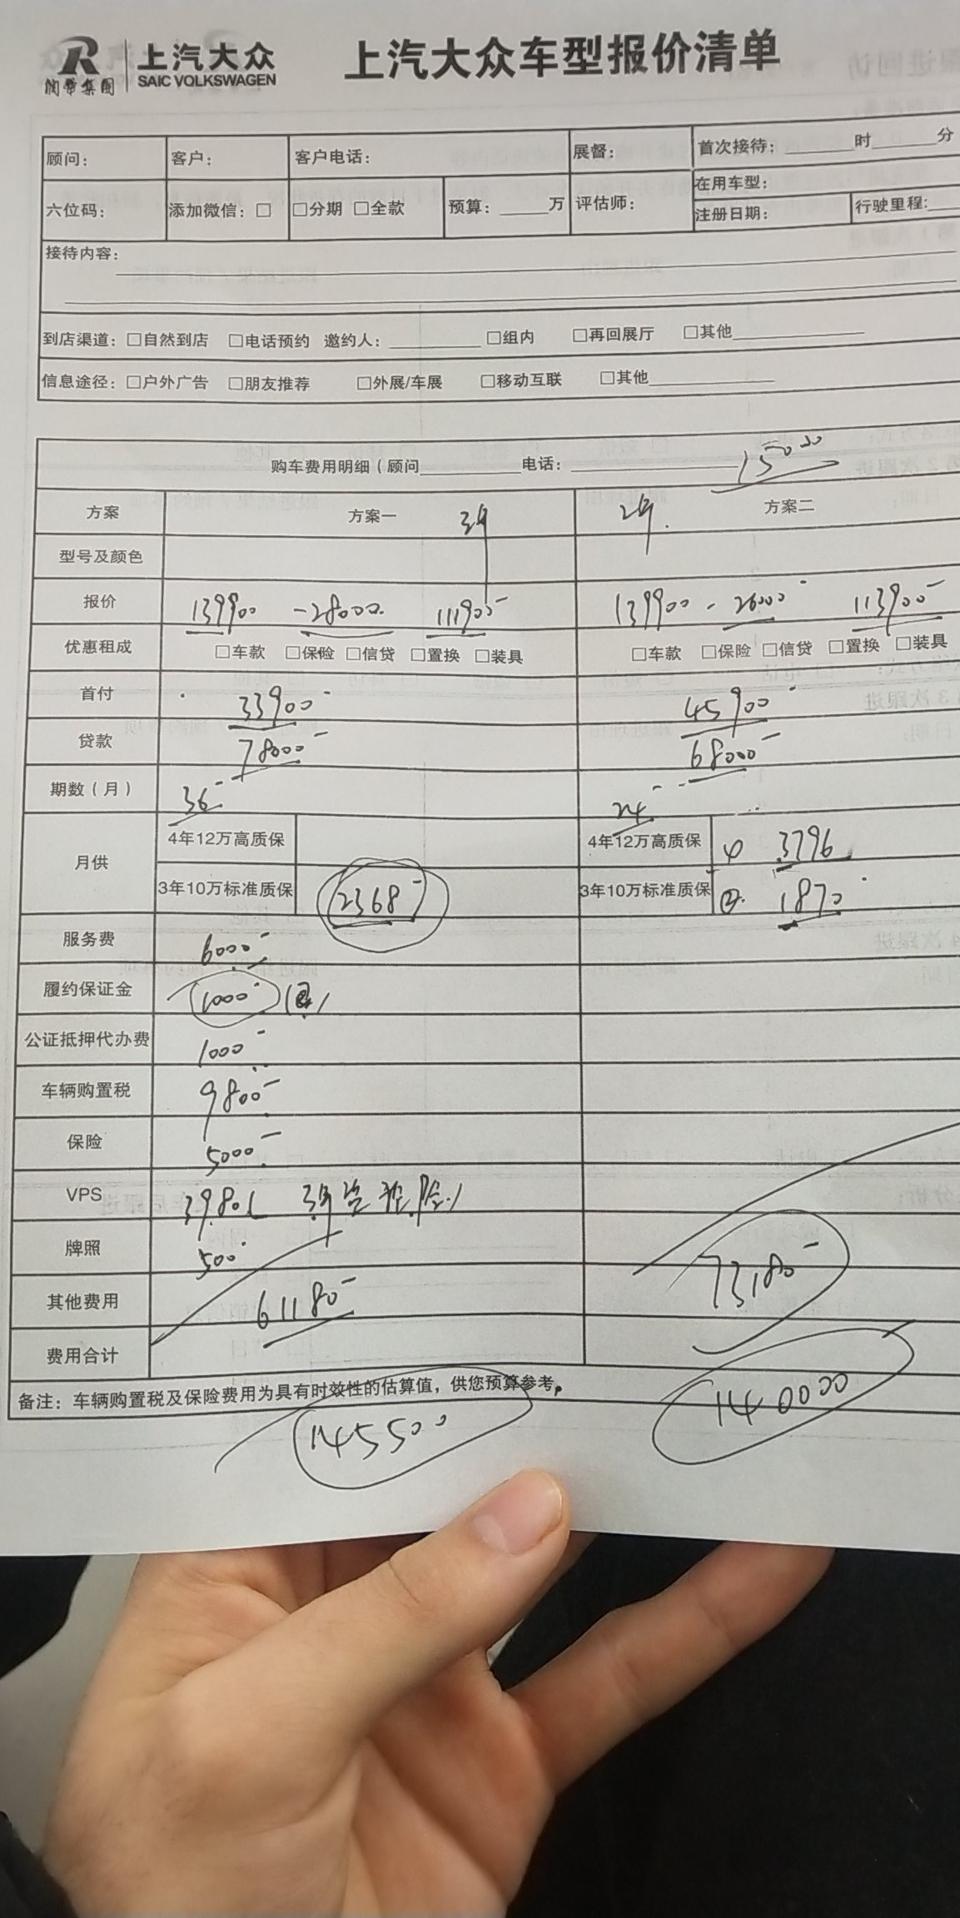 上汽大众
SAIC VOLKSWAGEN
润华集团
上汽大众车型报价清单
顾问： 客户： 客户电话： 展督： 首次接待：______时______分
六位码： 添加微信：□ □分期 □全款 预算：_____万 评估师： 在用车型：
注册日期： 行驶里程:
接待内容：
到店渠道：□自然到店 □电话预约 邀约人：________ □组内 □再回展厅 □其他________
信息途径：□户外广告 □朋友推荐 □外展/车展 □移动互联 □其他________
15000
购车费用明细（顾问________电话：________
方案 方案一 3年 2年. 方案二
型号及颜色
报价 139900 -28000. 111900- 139900 - 26000 113900-
优惠租成 □车款 □保险 □信贷 □置换 □装具 □车款 □保险 □信贷 □置换 □装具
首付 33900- 45900-
贷款 78000- 68000-
期数（月） 36- 24-
月供 4年12万高质保 4年12万高质保 ① 3796
3年10万标准质保 2368- 3年10万标准质保 ②. 1870
服务费 6000-
履约保证金 1000-
公证抵押代办费 1000-
车辆购置税 9800-
保险 5000-
VPS 3980 3年盗抢险
牌照 500-
其他费用 61180- 73180-
费用合计
备注：车辆购置税及保险费用为具有时效性的估算值，供您预算参考。
145500 140000